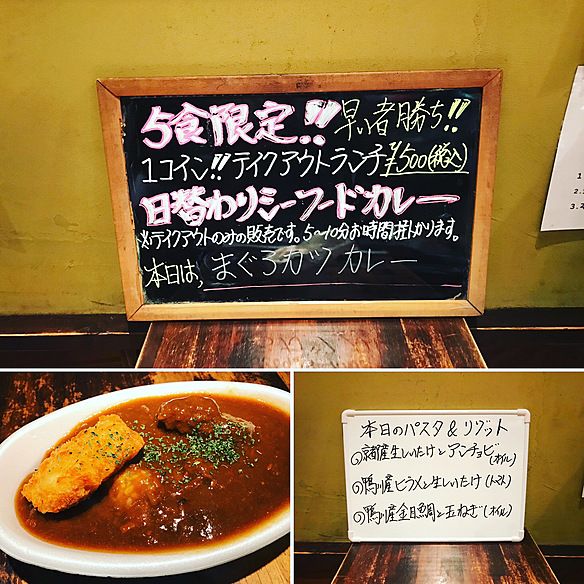 5食限定!! 早い者勝ち!!
1コイン!! テイクアウトランチ ¥500(税込)
日替わりシーフードカレー
※テイクアウトのみの販売です。5〜10分お時間掛かります。
本日は、まぐろカツカレー
1
2.
3.
本日のパスタ & リゾット
京都産生しいたけとアンチョビ(オイル)
鴨川産ヒラメと生しいたけ(トマト)
鴨川産金目鯛と玉ねぎ(オイル)